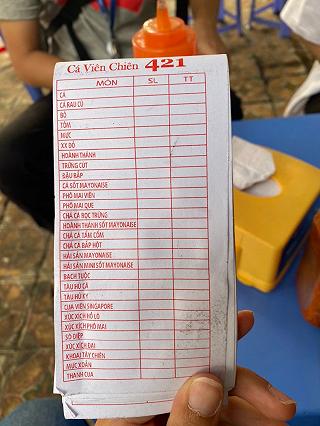 Cá Viên Chiên 421
MÓN SL TT
CÁ
CÁ RAU CỦ
BÒ
TÔM
MỰC
XX ĐỎ
HOÀNH THÁNH
TRỨNG CÚT
ĐẬU BẮP
CÁ SỐT MAYONAISE
PHÔ MAI VIÊN
PHÔ MAI QUE
CHẢ CÁ BỌC TRỨNG
HOÀNH THÁNH SỐT MAYONAISE
CHẢ CÁ TẨM CỐM
CHẢ CÁ BẮP HỘT
HẢI SẢN MAYONAISE
HẢI SẢN MINI SỐT MAYONAISE
BẠCH TUỘC
TÀU HỦ CÁ
TÀU HỦ KY
CUA VIÊN SINGAPORE
XÚC XÍCH HỒ LÔ
XÚC XÍCH PHÔ MAI
SÒ ĐIỆP
XÚC XÍCH ĐẠI
KHOAI TÂY CHIÊN
MỰC XOẮN
THANH CUA